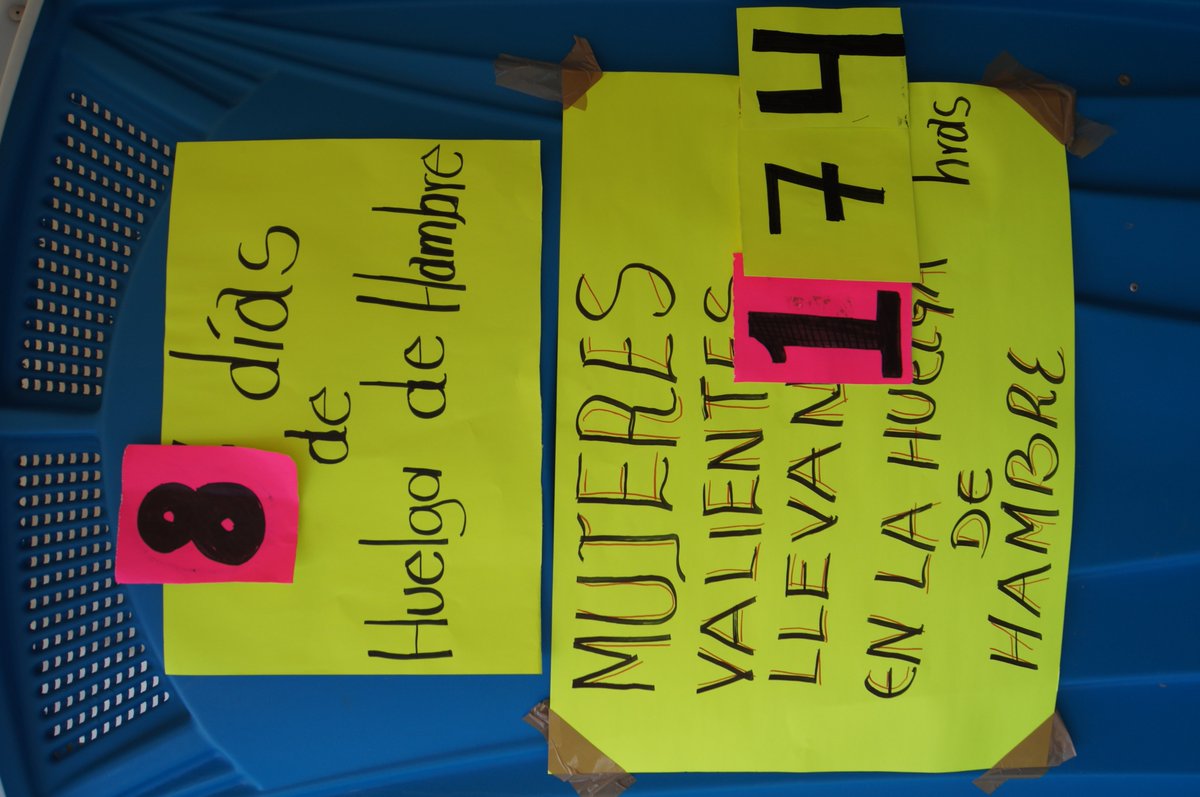 8 días
de
Huelga de Hambre
MUJERES
VALIENTES
LLEVAN 174 hrds
EN LA HUELGA
DE
HAMBRE